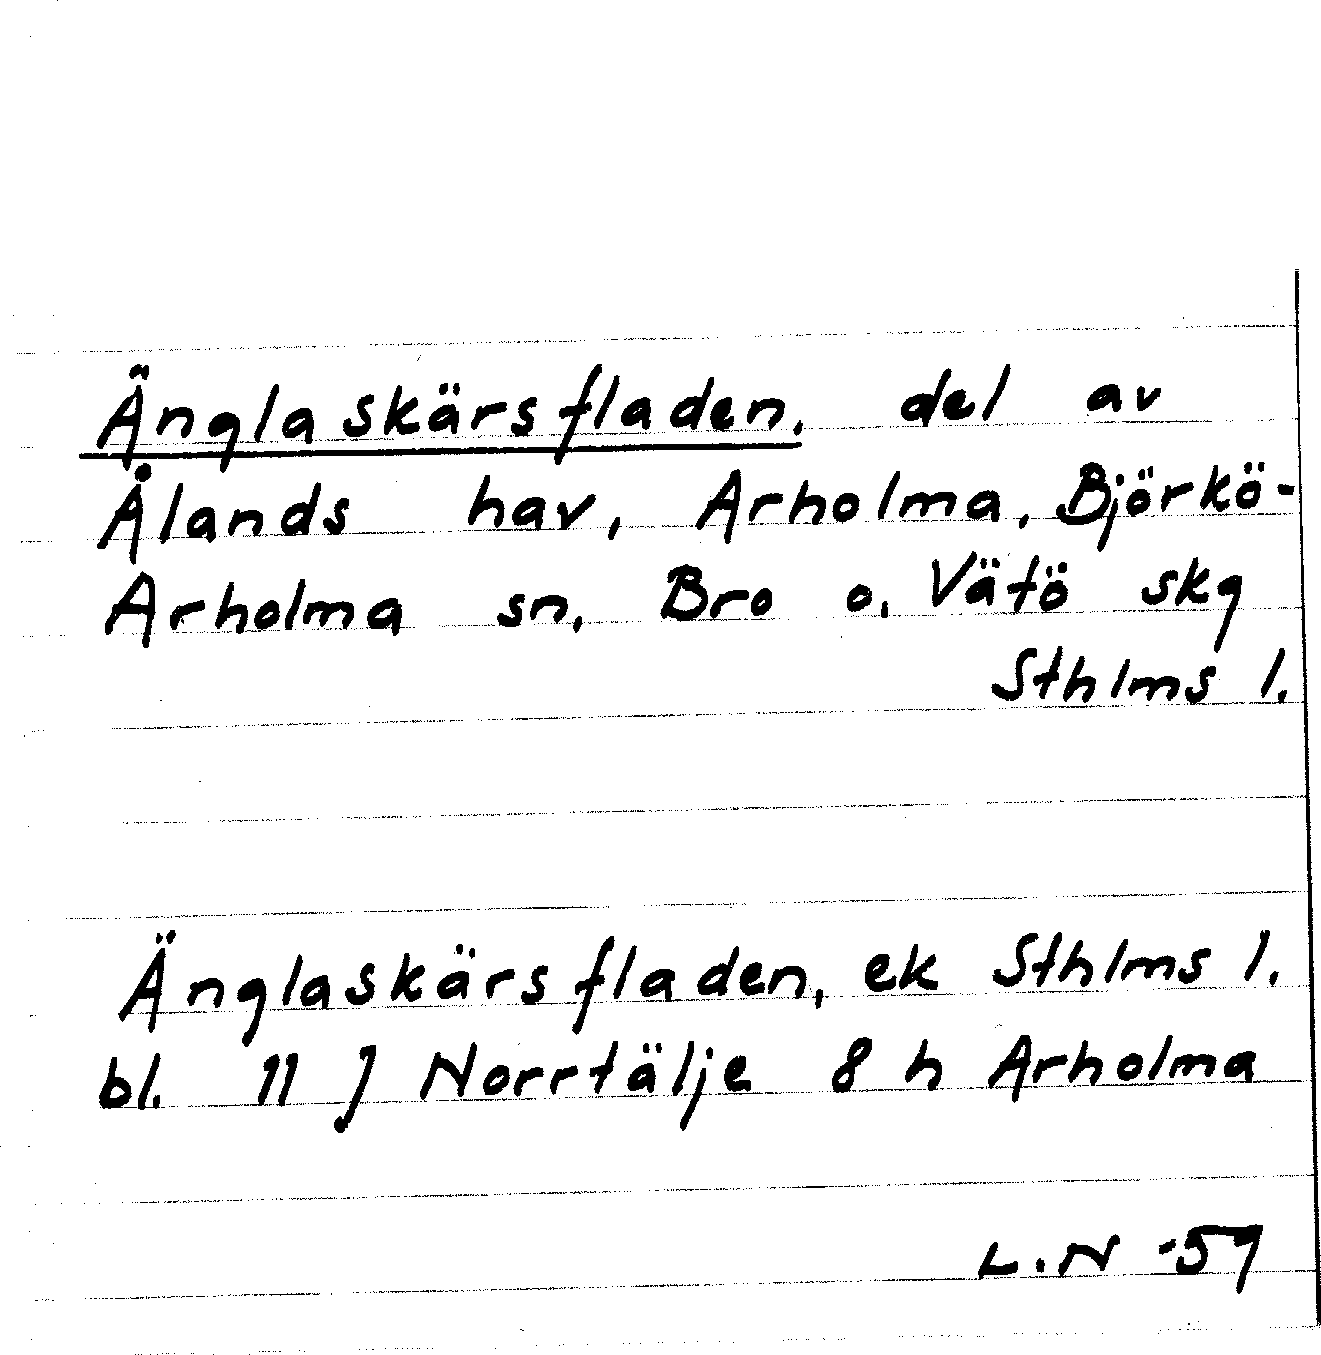 Änglaskärsfladen, del av
Ålands hav, Arholma, Björkö-
Arholma sn, Bro o. Vätö skg
Sthlms l.
Änglaskärsfladen, ek Sthlms l.
bl. 11 J Norrtälje 8 h Arholma
L.N -59